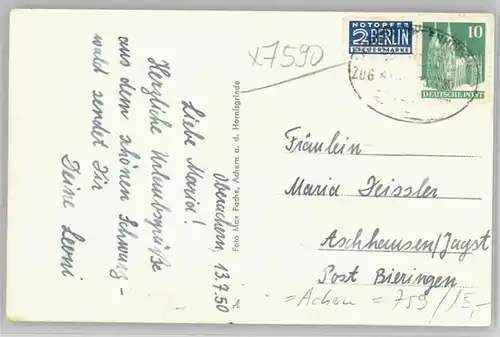 Oberachern, 13.7.50
Liebe Maria!
Herzliche Urlaubsgrüße
aus dem schönen Schwarz-
wald sendet Dir
Deine Leoni
Foto Max Pache, Achern a. d. Hornisgrinde
A
x7590
NOTOPFER
2 BERLIN
STEUERMARKE
10
DEUTSCHE POST
ZUG
Fräulein
Maria Heissler
Aschhausen/Jagst
Post Bieringen
= Achern = 759/15,-